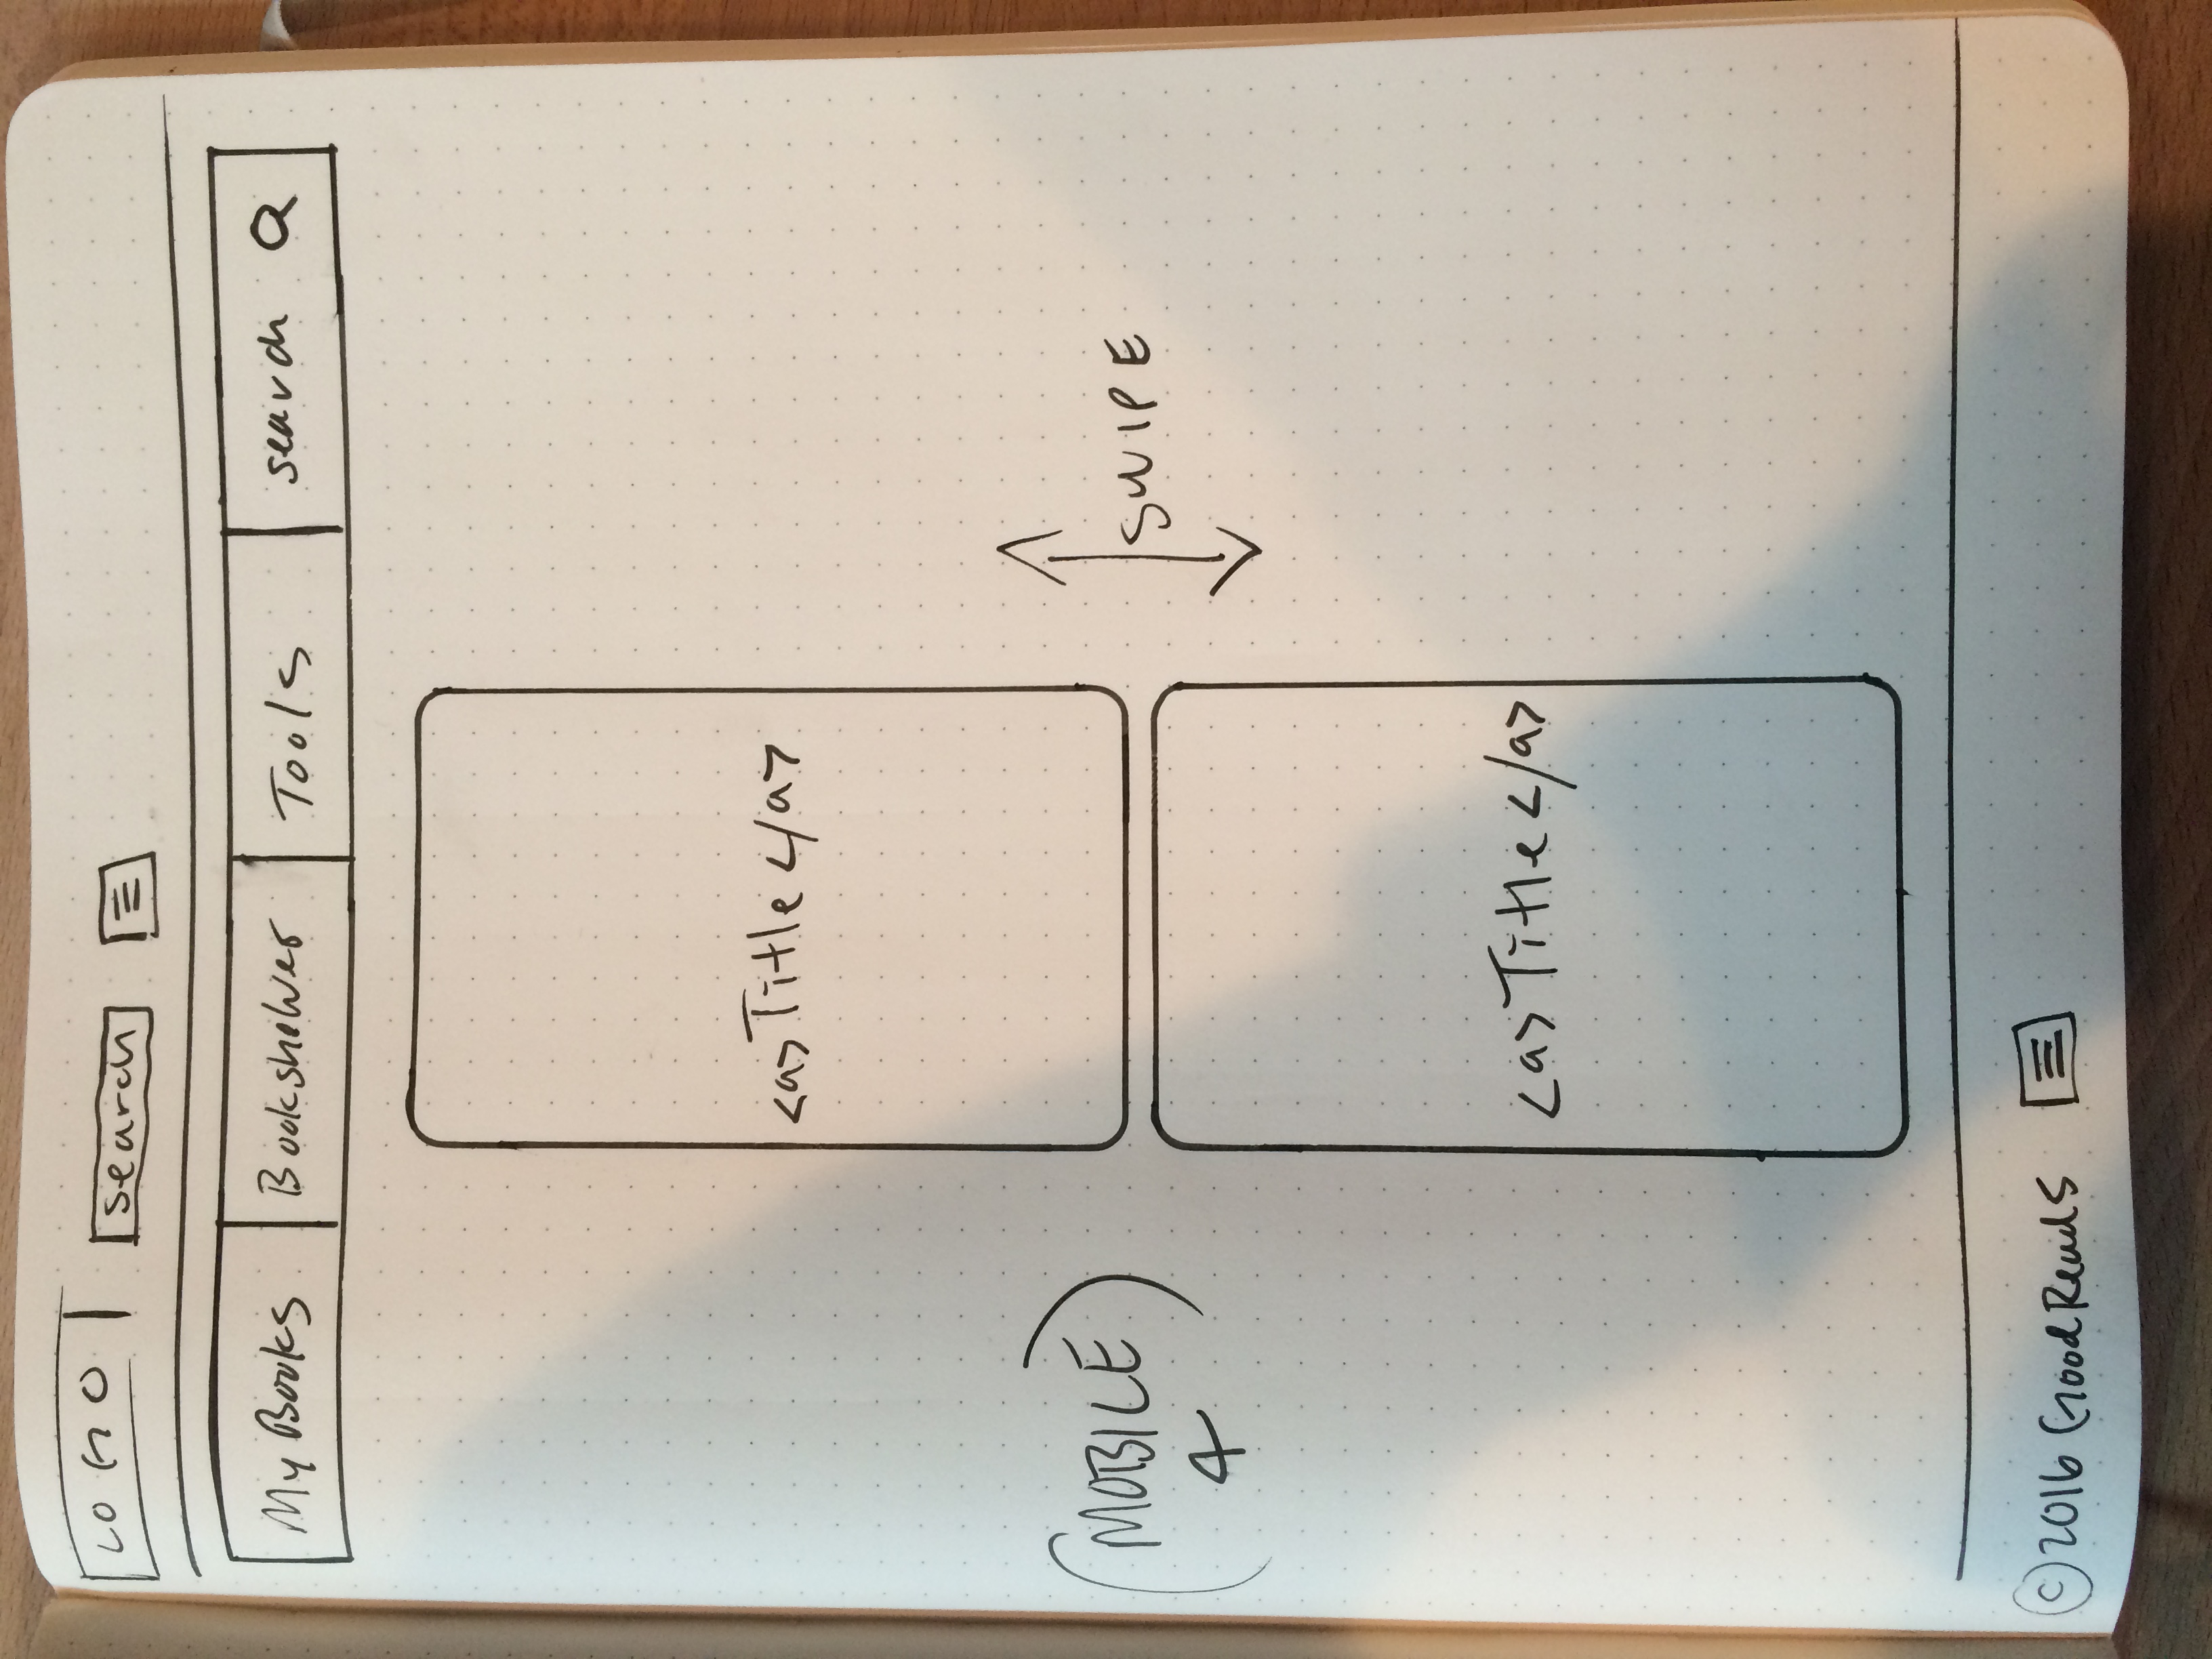 LOGO search
My Books Bookshelves Tools search
<a>Title</a>
(MOBILE)
4
SWIPE
<a>Title</a>
©2016 GoodReads